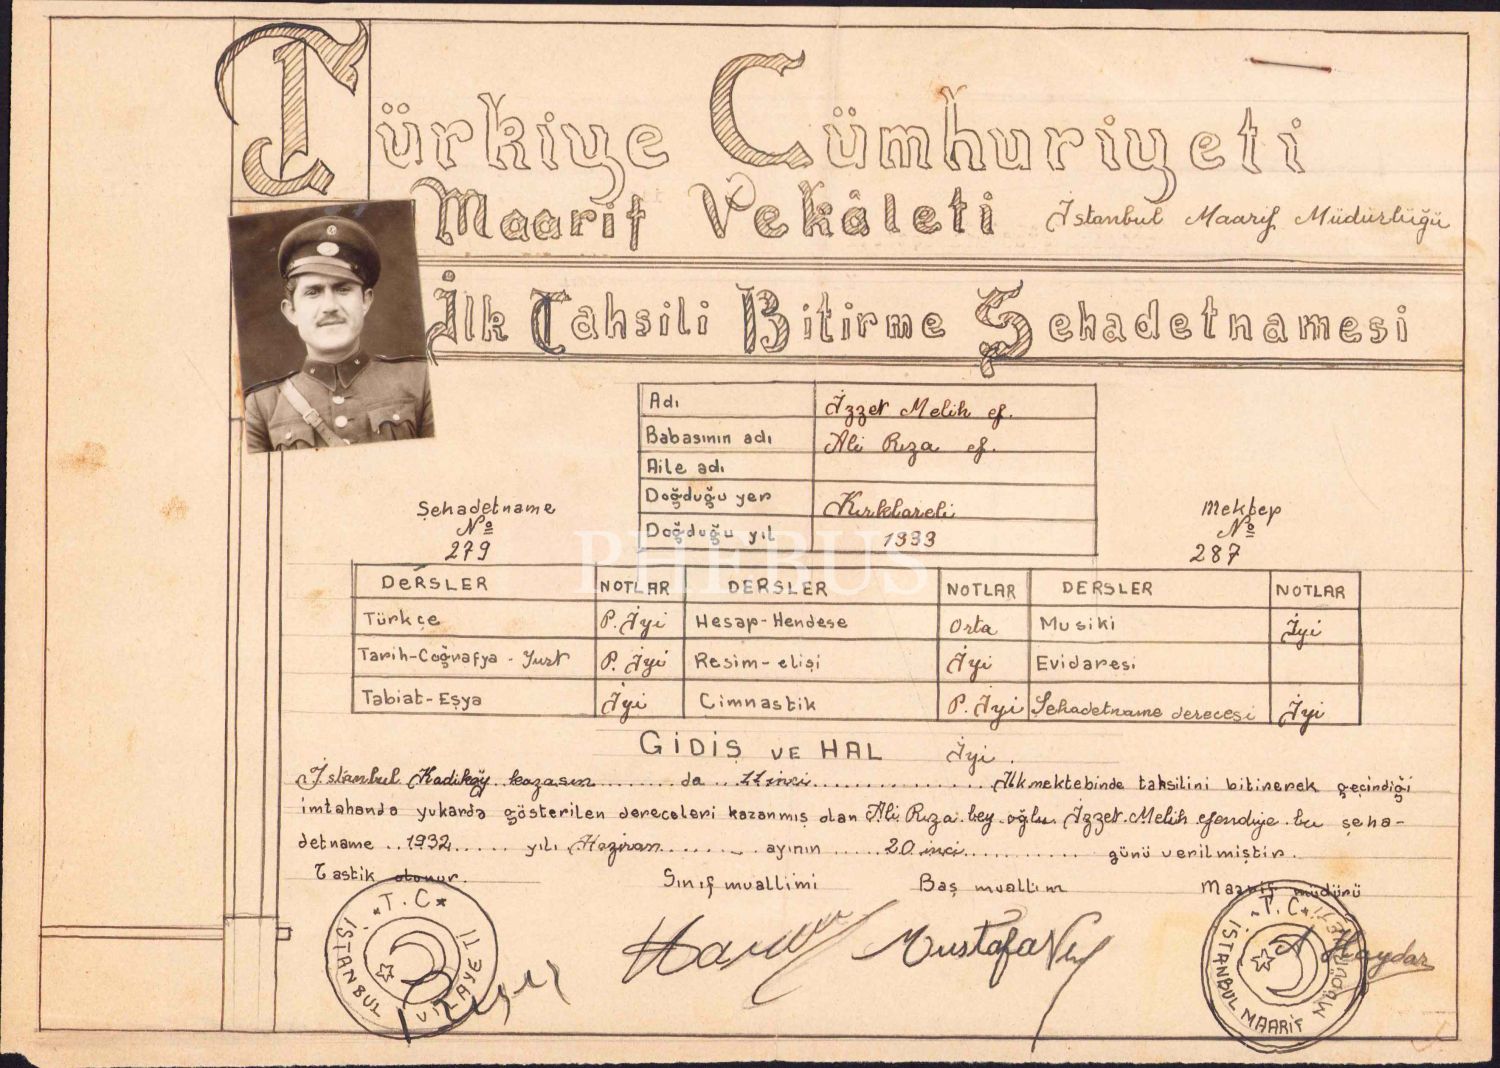 Türkiye Cümhuriyeti
Maarif Vekâleti İstanbul Maarif Müdürlüğü
İlk Tahsili Bitirme Şehadetnamesi
Adı İzzet Melih ef.
Babasının adı Ali Rıza ef.
Aile adı
Doğduğu yer Kırklareli
Doğduğu yıl 1333
Şehadetname
No
279
Mektep
No
287
PHEBUS
DERSLER NOTLAR DERSLER NOTLAR DERSLER NOTLAR
Türkçe P. İyi Hesap-Hendese Orta Musiki İyi
Tarih-Coğrafya - Yurt P. İyi Resim-elişi İyi Evidaresi
Tabiat-Eşya İyi Cimnastik P. İyi Şehadetname derecesi İyi
GİDİŞ VE HAL İyi.
İstanbul Kadıköy kazasın...... da 11 inci............ İlkmektebinde tahsilini bitirerek geçindiği
imtahanda yukarda gösterilen dereceleri kazanmış olan Ali Rıza bey oğlu İzzet Melih efendiye bu şeha-
detname ..1932..... yılı Haziran....... ayının ....20 inci.......... günü verilmiştir.
Tastik olonur. Sınıf muallimi Baş muallim Maarif müdürü
T.C İSTANBUL VİLAYETİ
Mustafa
A Haydar
T.C. İSTANBUL MAARİF